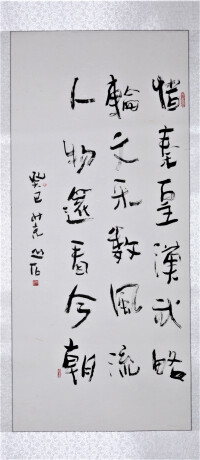 惜秦皇漢武略
輸文采數風流
人物還看今朝
癸巳